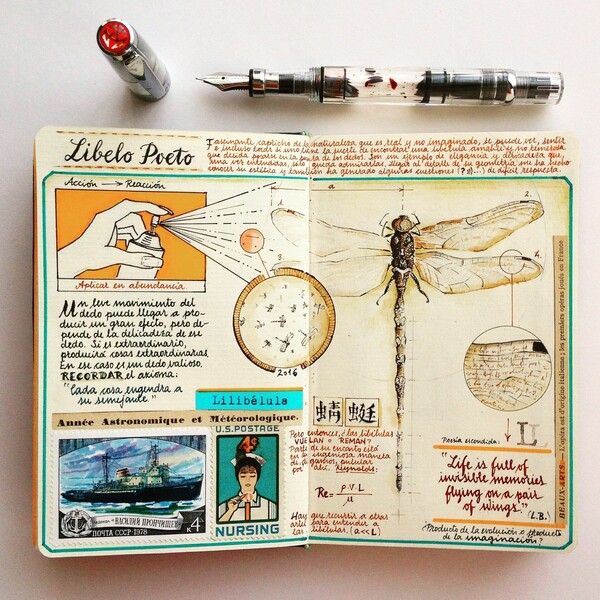 Libelo Poeto
Fascinante capricho de la naturaleza que es real y no imaginado, se puede ver, sentir
e incluso tocar si uno tiene la suerte de encontrar una libélula amable y no temerosa
que decida posarse en la punta de los dedos. Son un ejemplo de elegancia y delicadeza que,
una vez entendidas, solo queda admirarlas, llegar al detalle de su geometría me ha hecho
conocer su estética y también ha generado algunas cuestiones (?a)...) de difícil respuesta.
Acción → Reacción
Aplicar en abundancia.
Un leve movimiento del
dedo puede llegar a pro-
ducir un gran efecto, pero de-
pende de la delicadeza de ese
dedo. Si es extraordinario,
producirá cosas extraordinarias.
En ese caso es un dedo valioso.
RECORDAR el axioma:
"Cada cosa engendra a
su semejante"
1.
a
2.
3.
4.
2016
Lilibélula
Année Astronomique et Météorologique.
ЛЕДОКОЛ "ВАСИЛИЙ ПРОНЧИЩЕВ"
ПОЧТА СССР·1978
к4
U.S. POSTAGE
4¢
NURSING
蜻 蜓
Pero entonces, ¿las libélulas
VUELAN o REMAN?
Parte de su encanto está
en la ingeniosa manera,
digamos, pulular
por aire. Reynolds:
Re = ρ·V·L / μ
Hay que recurrir a otras
artes para entender a
las libélulas. (a << L)
Poesía escondida:
L
"Life is full of
invisible memories
flying on a pair
of wings." (L.B.)
¿Producto de la evolución o producto
de la imaginación?
BEAUX-ARTS. — L'opéra est d'origine italienne ; les premiers opéras joués en France